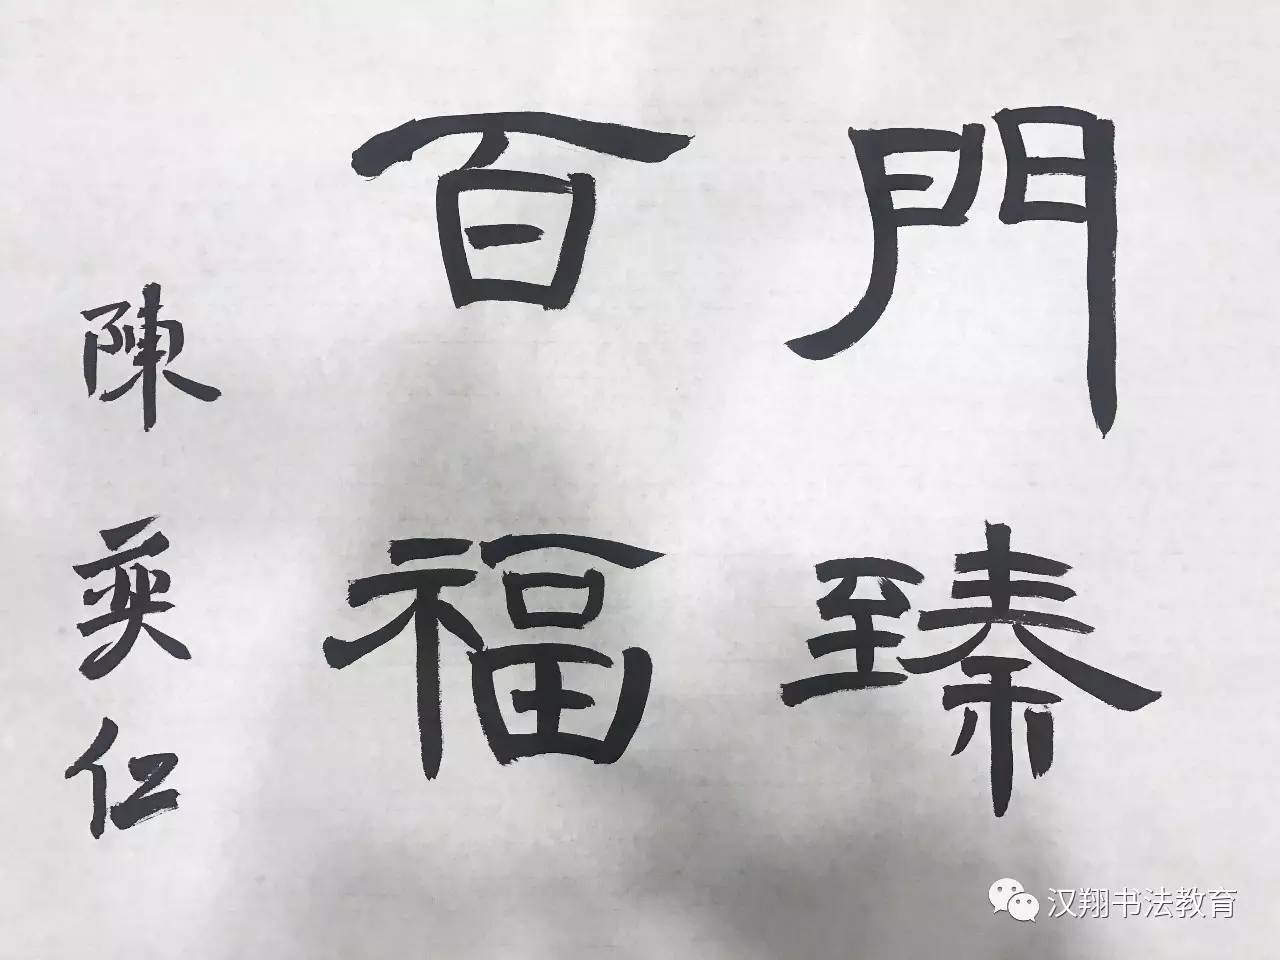 門臻
百福
陳奕仁
汉翔书法教育